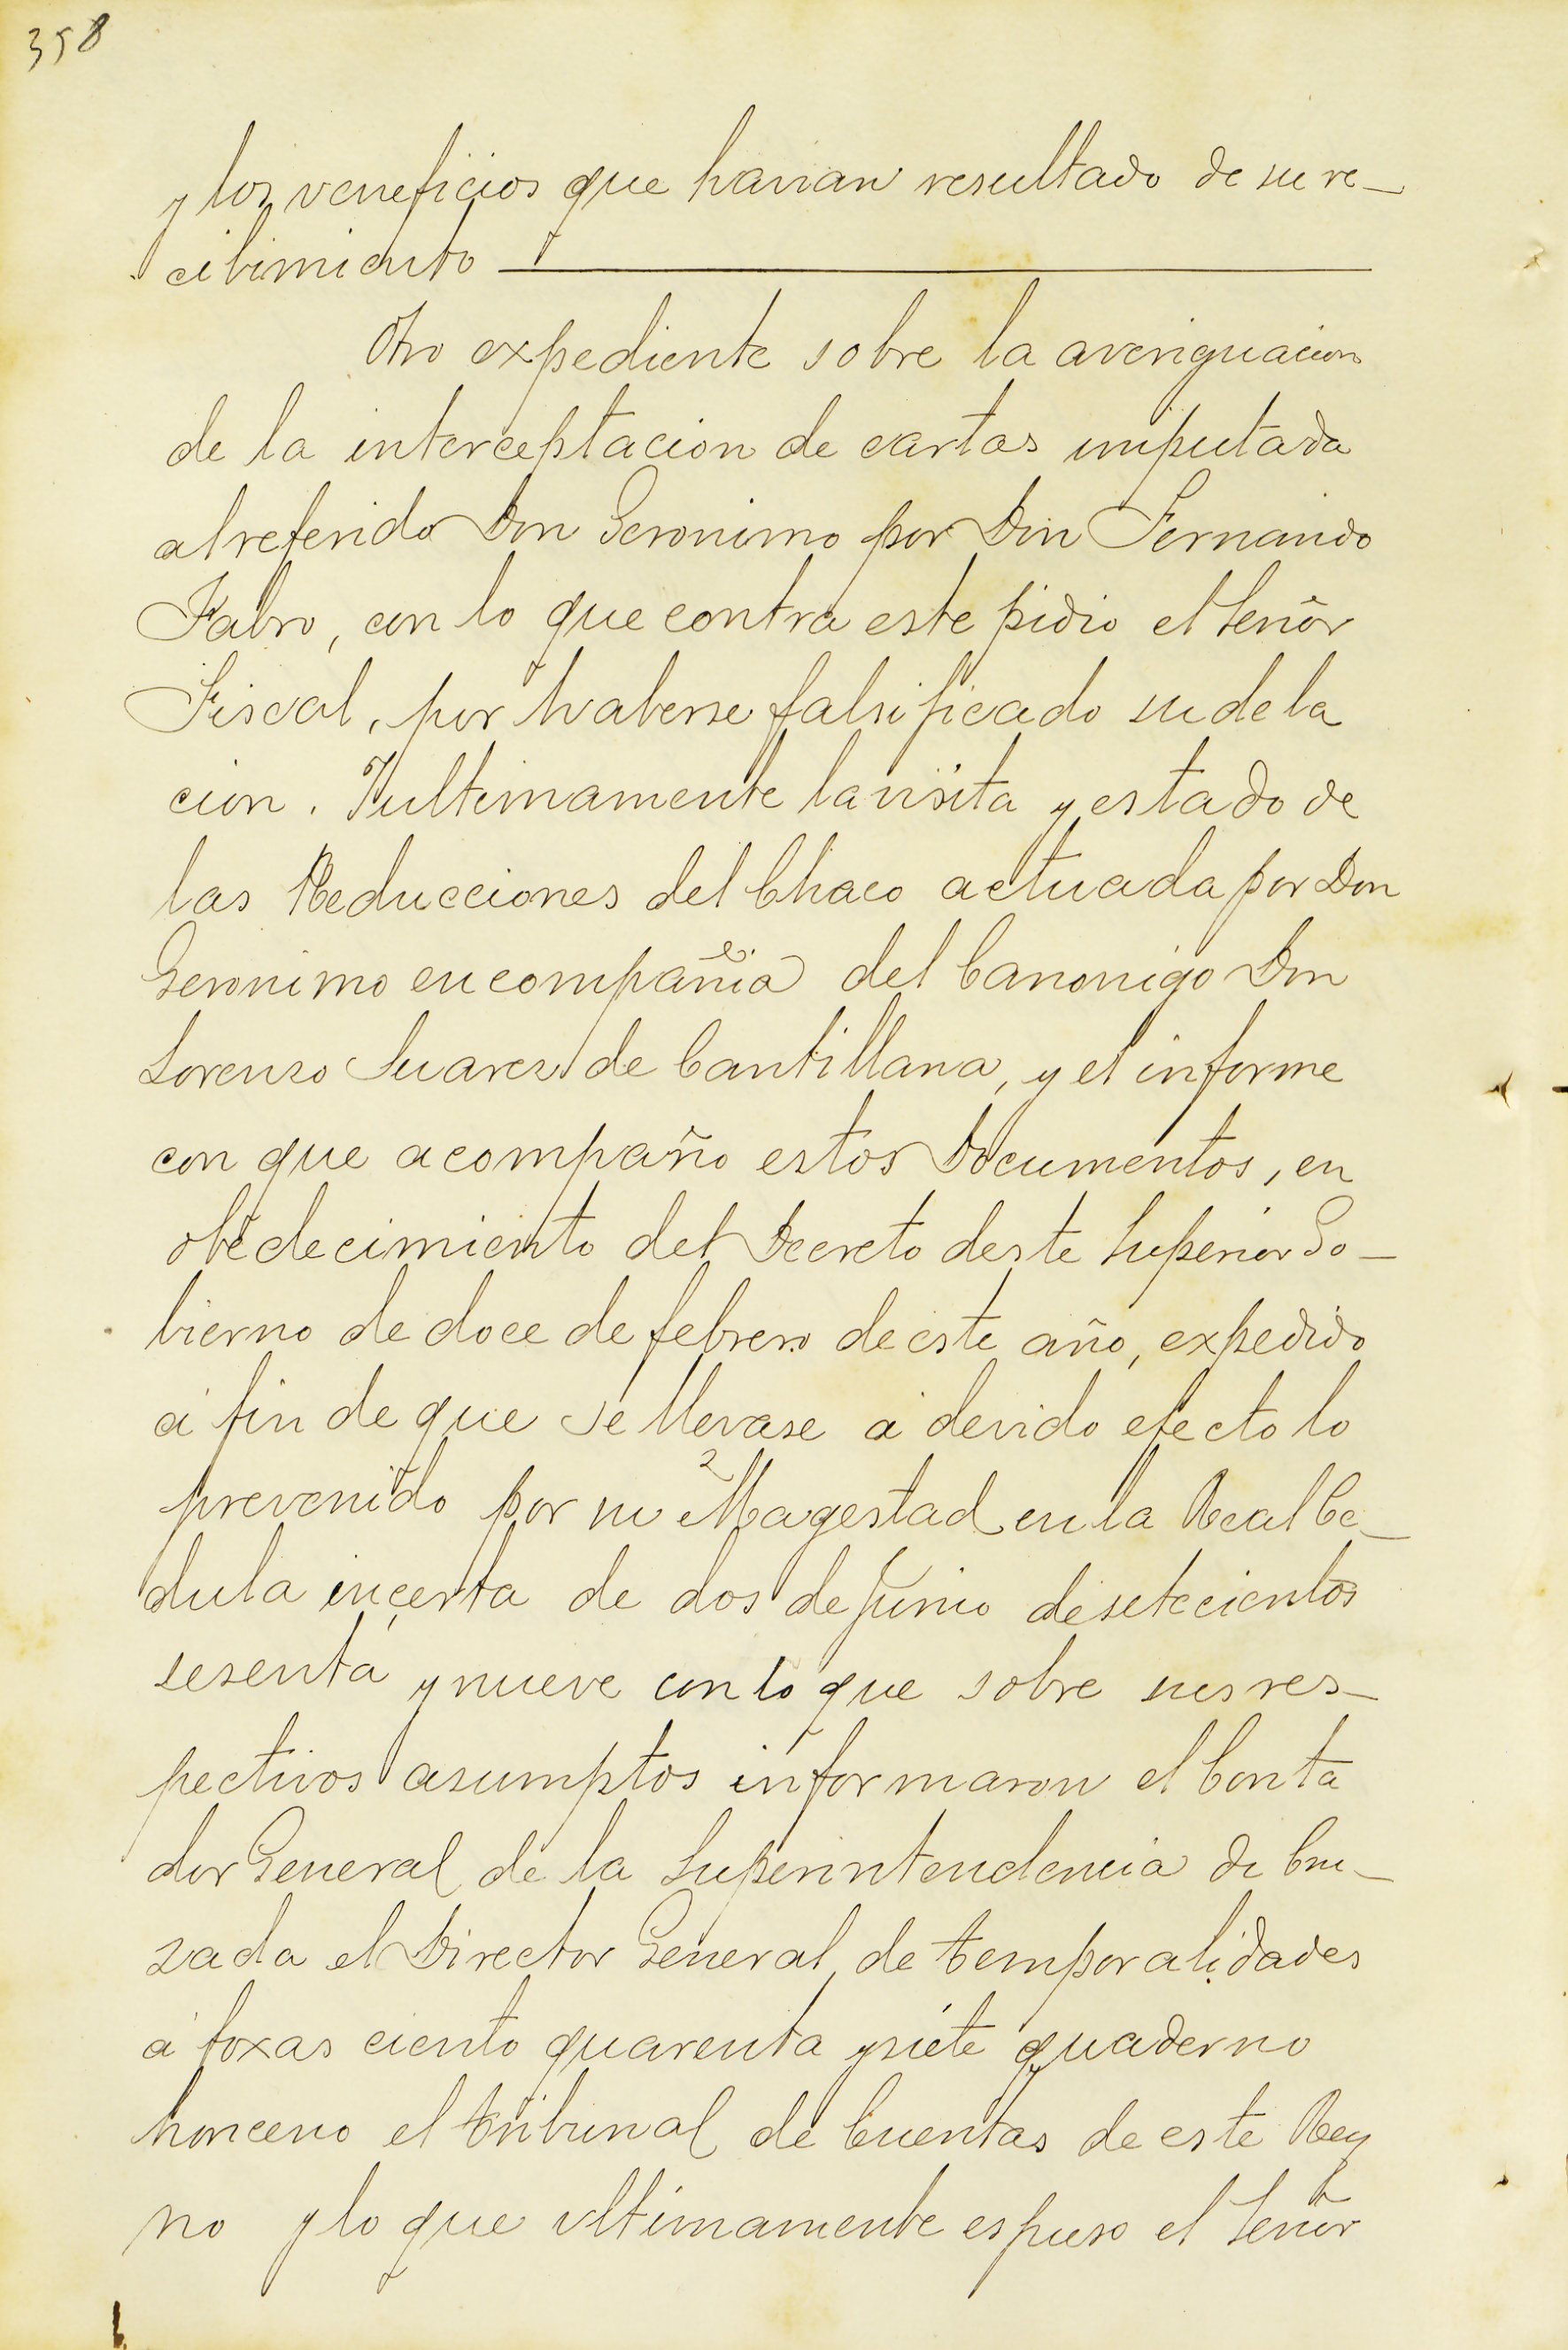 358
y los veneficios que havian resultado de su re-
cibimiento
Otro expediente sobre la averiguacion
de la interceptacion de cartas imputada
al referido Don Geronimo por Don Fernando
Fabro, con lo que contra este pidio el Señor
Fiscal, por haberse falsificado su dela
cion. Y ultimamente la visita y estado de
las Reducciones del Chaco actuada por Don
Geronimo en compañia del Canonigo Don
Lorenzo Suarez de Cantillana, y el informe
con que acompaño estos Documentos, en
obedecimiento del Decreto deste Superior Go-
bierno de doce de febrero de este año, expedido
á fin de que se llevase á devido efecto lo
prevenido por su Magestad en la Real Ce-
dula incerta de dos de Junio de setecientos
sesenta y nueve con lo que sobre sus res-
pectivos asumptos informaron el Conta
dor General de la Superintendencia de Cru-
zada el Director General de temporalidades
á foxas ciento quarenta y siete quaderno
honceno el tribunal de Cuentas de este Rey
no y lo que ultimamente espuso el Señor